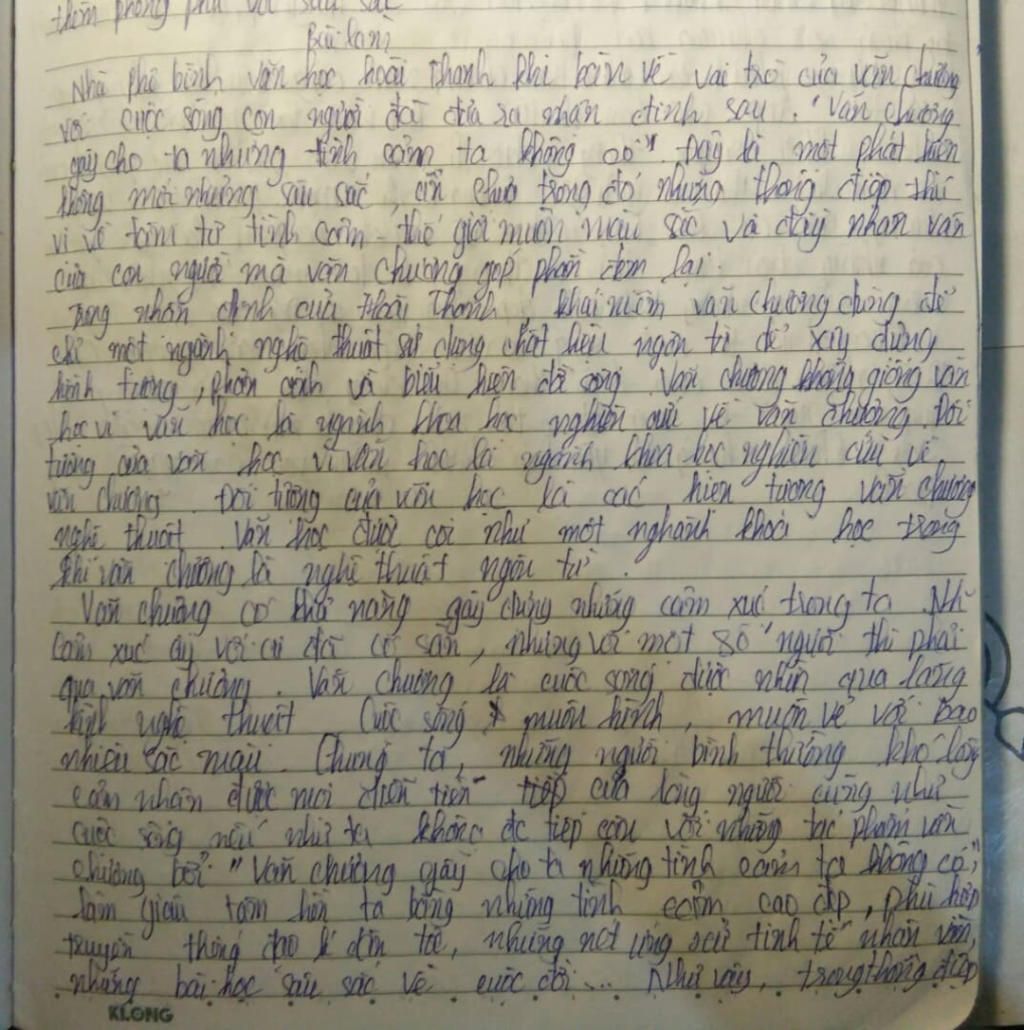 thêm phong phú và sâu sắc
Bài làm
Nhà phê bình văn học hoài Thanh khi bàn về vai trò của văn chương
với cuộc sống con người đã đưa ra nhận định sau. "Văn chương
gây cho ta những tình cảm ta không có". Đây là một phát hiện
không mới nhưng sâu sắc, ẩn chứa trong đó những thông điệp thú
vị về tâm tư tình cảm - thế giới muôn màu sắc và đầy nhân văn
của con người mà văn chương góp phần đem lại.
Trong nhận định của Hoài Thanh, khái niệm văn chương dùng để
chỉ một ngành nghệ thuật sử dụng chất liệu ngôn từ để xây dựng
hình tượng, phản ánh và biểu hiện đời sống. Văn chương không giống văn
học vì văn học là ngành khoa học nghiên cứu về văn chương. Đối
tượng của văn học vì văn học là ngành khoa học nghiên cứu về
văn chương. Đối tượng của văn học là các hiện tượng văn chương
nghệ thuật. Văn học được coi như một nghành khoa học trong
khi văn chương là nghệ thuật ngôn từ.
Văn chương có khả năng gây dựng những cảm xúc trong ta. Nh
cảm xúc ấy với ai đã có sẵn, nhưng với một số người thì phải
qua văn chương. Văn chương là cuộc sống được nhìn qua lăng
kính nghệ thuật. Cuộc sống muôn hình, muôn vẻ với bao
nhiêu sắc màu. Chúng ta, những người bình thường khó lòng
cảm nhận được mọi diễn tiến tiếp của lòng người cũng như
cuộc sống nếu như ta không đc tiếp cận với những tác phẩm văn
chương bởi "Văn chương gây cho ta những tình cảm ta không có",
làm giàu tâm hồn ta bằng những tình cảm cao đẹp, phù hợp
truyền thống đạo lí dân tộc, những nét ứng xử tinh tế nhân văn,
những bài học sâu sắc về cuộc đời... Như vậy, trong thông điệp
KLONG